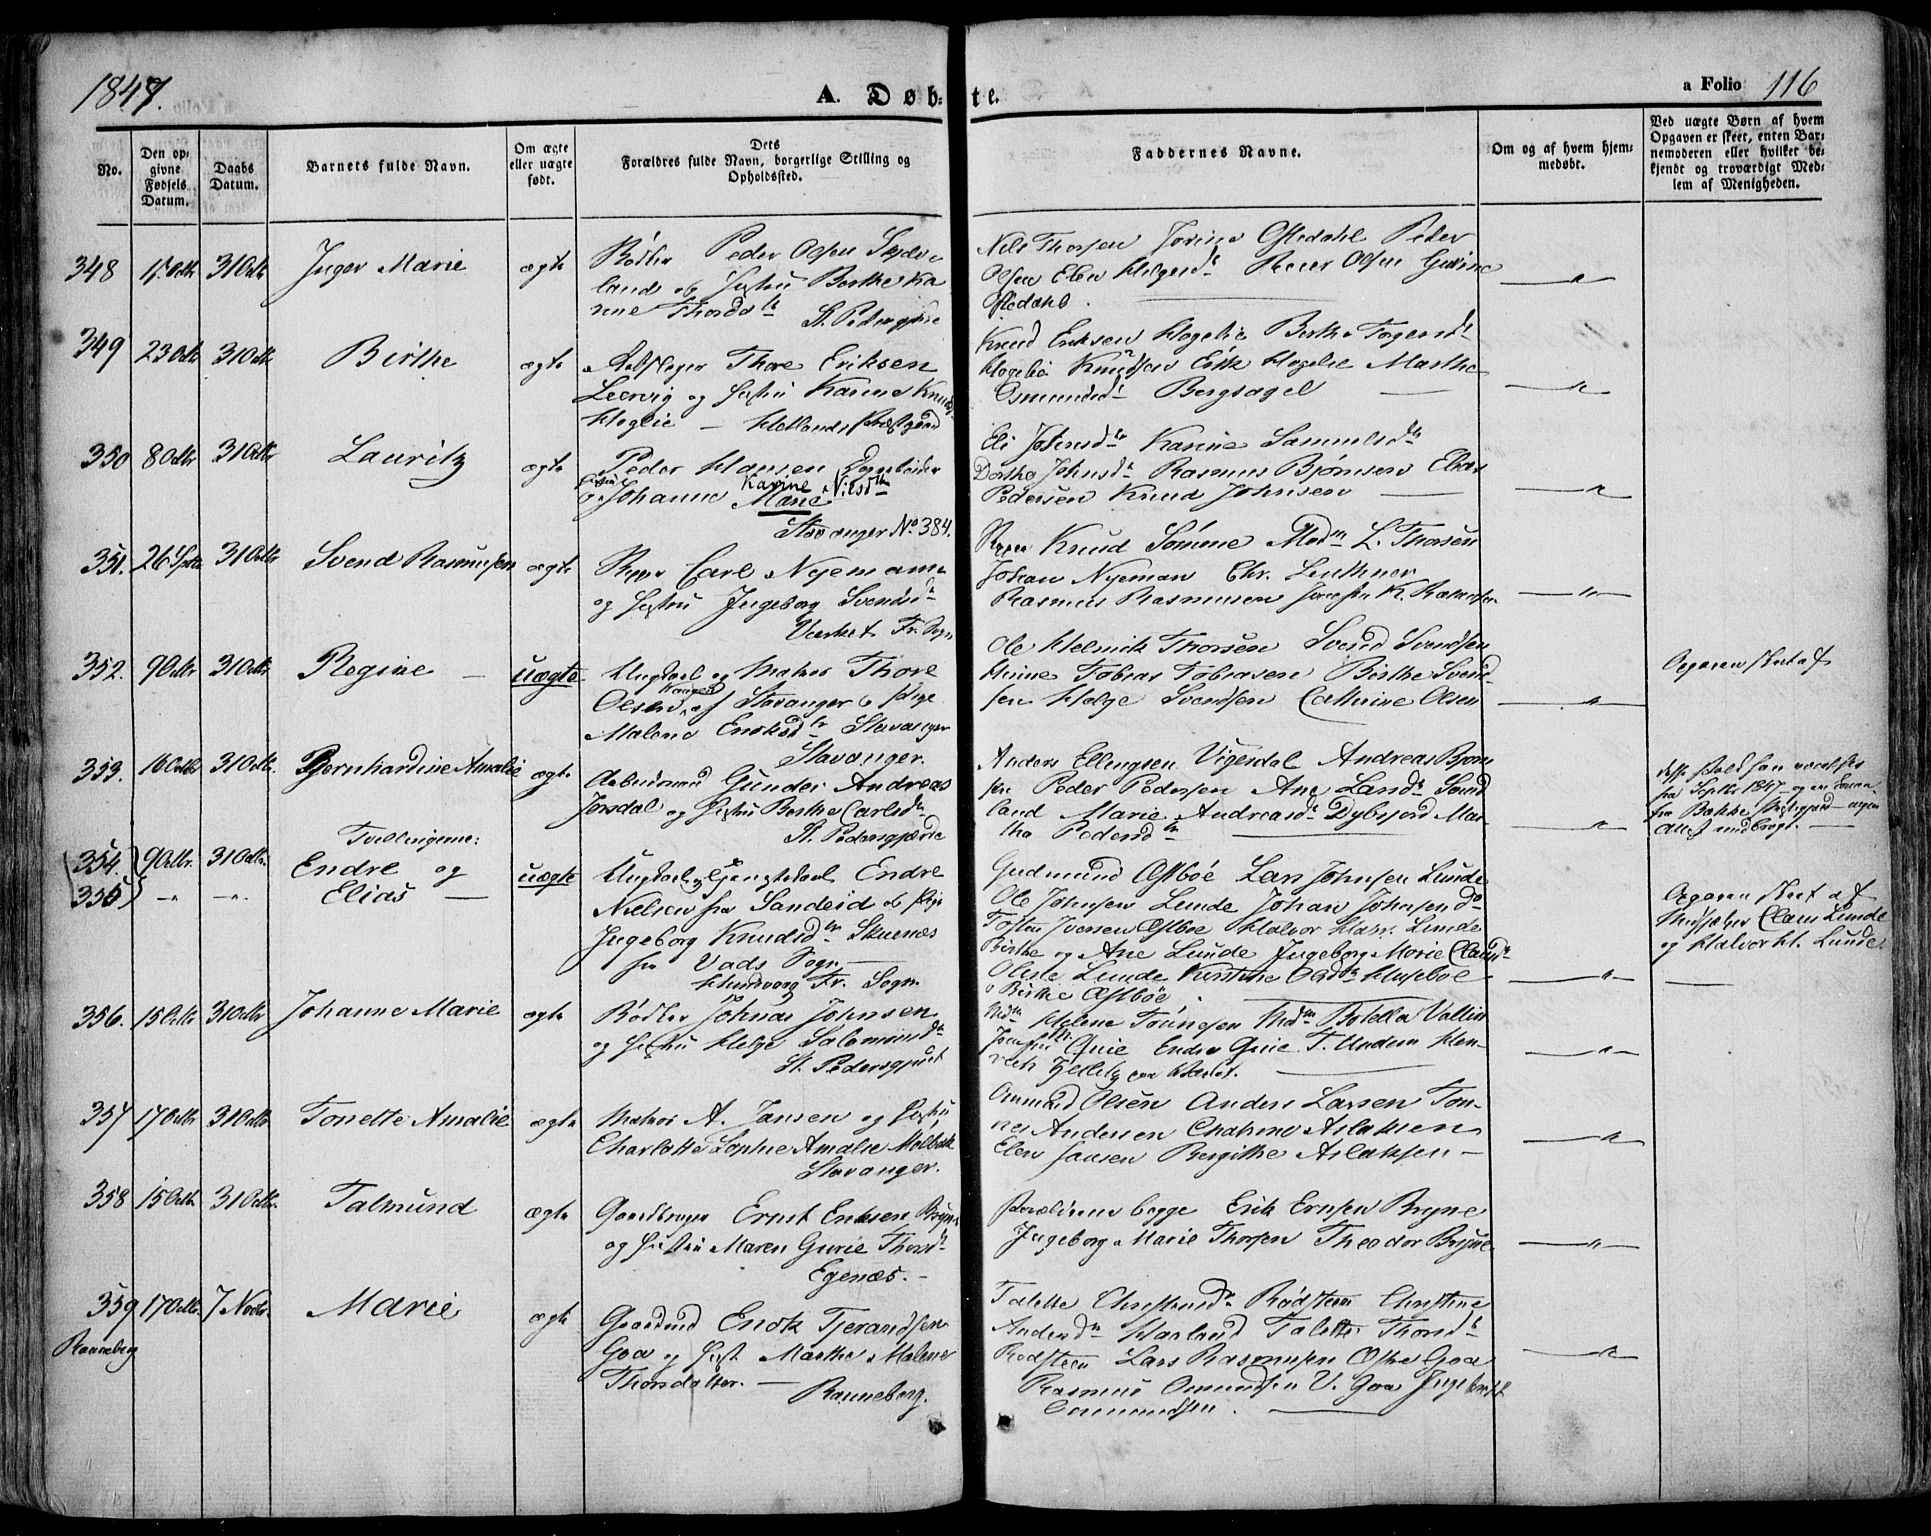 1847.
A. Døb-
te.
a Folio 116
No.
Den op-
givne
Fødsels
Datum.
Daabs
Datum.
Barnets fulde Navn.
Om ægte
eller uægte
født.
Dets
Forældres fulde Navn, borgerlige Stilling og
Opholdssted.
Faddernes Navne.
Om og af hvem hjem-
medøbt.
Ved uægte Børn af hvem
Opgaven er skeet, enten Bar-
nemoderen eller hvilket be-
kjendt og troværdigt Med-
lem af Menigheden.
348 31 Octbr Inger Marie ægte
Bødker Peder Olsen
land og Hustru Berthe Ka
rine Thordsdtr
St. Pedersgjerde
Nils Thorsen Jorine Oftedahl Peder
Olsen Elen Helgesdtr Olsen Gurine
Oftedahl
349 23 Octbr 31 Octbr Birthe ægte
Thore Eriksen
Leervig og Hustru Karen Knudsdtr
Høglie — Hetlands Præstegaard
Knud Eriksen Høgelie Berthe
Høgelie Knudsen Erik Høgelie Marthe
Osmundsdtr Bergsagel
350 8 Octbr 31 Octbr Lauritz ægte
Peder Hansen
Johanne Karine Marie Nilsdtr
Stavanger No 384.
Eli Johnsdtr Karine Samuelsdtr
Dorthe Johnsdtr Rasmus Bjørnsen Elias
Pedersen Knud Johnsen
351. 26 Septr 31 Octbr Svend Rasmusen ægte
Carl Nyeman
og Hustru Ingeborg Svendsdtr
Værket Fr. Sogn
Knud Sømme Madm L. Thorsen
Johan Nyeman Chr. Leuthner
Rasmus Rasmusen K. Rasmusen
352. 9 Octbr 31 Octbr Regine — uægte
Ungkarl og Matros Thore
Olsen af Stavanger og Pige
Malene Enoksdtr Stavanger
Stavanger.
Ole Helmik Thorsen Svend Svendsen
Hinne Tobias Tobiasen Birthe Svend-
sen Helge Svendsen Cathrine Olsen
Opgaven skeet af
353. 16 Octbr 31 Octbr. Bernhardine Amalie ægte
Arbeidsmand Gunder Andreas
Jørsdal og Hustru Berthe Carlsdtr
St. Pedersgjerde
Anders Ellingsen Vigesdal Andreas Bjørn
sen Peder Pedersen Ane Larsdtr Sønd
land Marie Andreasdtr Dybsjord Mar
tha Pedersdtr
fra Septbr 1847
354. 9 Octbr. 31 Octbr. Tvillingerne:
355 — " — " Endre og
Elias —
uægte
Ungkarl og Endre
Nielsen fra Sandeid og Pige
Ingeborg Knudsdtr Skuenæs
fra Vads Sogn —
Hundvaag Fr. Sogn.
Gudmund Østbøe Lars Johnsen Lunde
Ole Johnsen Lunde Johan Johnsen do
Tosten Iversen Østbøe Halvor Lunde
Birthe og Ane Lunde Ingeborg Marie
Lunde Kirstine Olsdtr Husebøe
Birthe Østbøe
Opgaven skeet af
Medhjælper Claus Lunde
og Halvor Lunde
356. 15 Octbr 31 Octbr Johanne Marie ægte
Bødker Johnas Johnsen
og Hustru Helge Salomonsdtr
St. Pedersgjerdet
Madm Helene Tønnesen Madm Botella Vallin
Endre T. Undem Hen-
rich paa Værket.
357 17 Octbr 31 Octbr Tonette Amalie ægte
Matros A. Jansen og Hustru
Charlotte Sophie Amalie
Stavanger.
Ommund Olsen Anders Larsen Ton-
nes Andersen Chatrine Aslaksen
Elen Jansen Bergithe Aslaksen —
358 15 Octbr 31 Octbr. Talmund ægte
Gaardbruger Ernst Eriksen Bryne
og Hustru Maren Gurie Thorsdtr
Egenæs. —
Forældrene begge Erik Ernsen Bryne
Ingeborg Marie Thorsen Theodor Bryne
359 17 Octbr. 7 Novbr. Marie ægte
Ranneberg
Gaardmd Enok Tjerandsen
Goa og Hust. Marthe Malene
Thorsdatter. — Ranneberg.
Talette Christensdtr Rødsteen Christine
Andersdtr Harland Talette Thorsdtr
Rødsteen Lars Rasmusen Goa
Rasmus Omundsen V. Goa
Ommundsen.